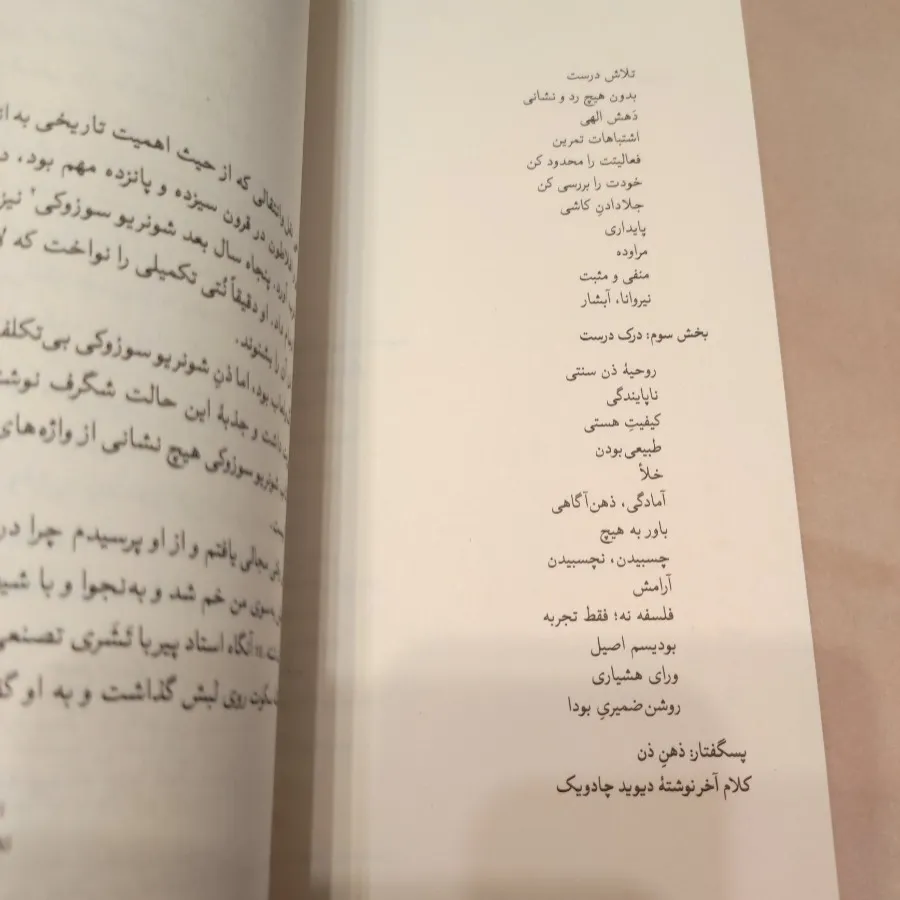 تلاش درست
بدون هیچ رد و نشانی
دَهش الهی
اشتباهات تمرین
فعالیتت را محدود کن
خودت را بررسی کن
جلادادنِ کاشی
پایداری
مراوده
منفی و مثبت
نیروانا، آبشار
بخش سوم: درک درست
روحیهٔ ذن سنتی
ناپایندگی
کیفیتِ هستی
طبیعی بودن
خلأ
آمادگی، ذهن‌آگاهی
باور به هیچ
چسبیدن، نچسبیدن
آرامش
فلسفه نه؛ فقط تجربه
بودیسم اصیل
ورای هشیاری
روشن‌ضمیریِ بودا
پسگفتار: ذهنِ ذن
کلام آخر نوشتهٔ دیوید چادویک
وانتقالی که از حیث اهمیت تاریخی به
افلاطون در قرون سیزده و پانزده مهم بود،
آورد. پنجاه سال بعد شونریو سوزوکی۲ نیز
داد. او دقیقاً نُتی تکمیلی را نواخت که
آن را بشنوند.
بود، اما ذنِ شونریو سوزوکی بی‌تکلف
داشت و جذبهٔ این حالت شگرف
شونریو سوزوکی هیچ نشانی از واژه‌های
مجالی یافتم و از او پرسیدم چرا در
به‌سوی من خم شد و به‌نجوا و با
آنگاه استاد پیر با تَشَری تصنعی
روی لبش گذاشت و به او